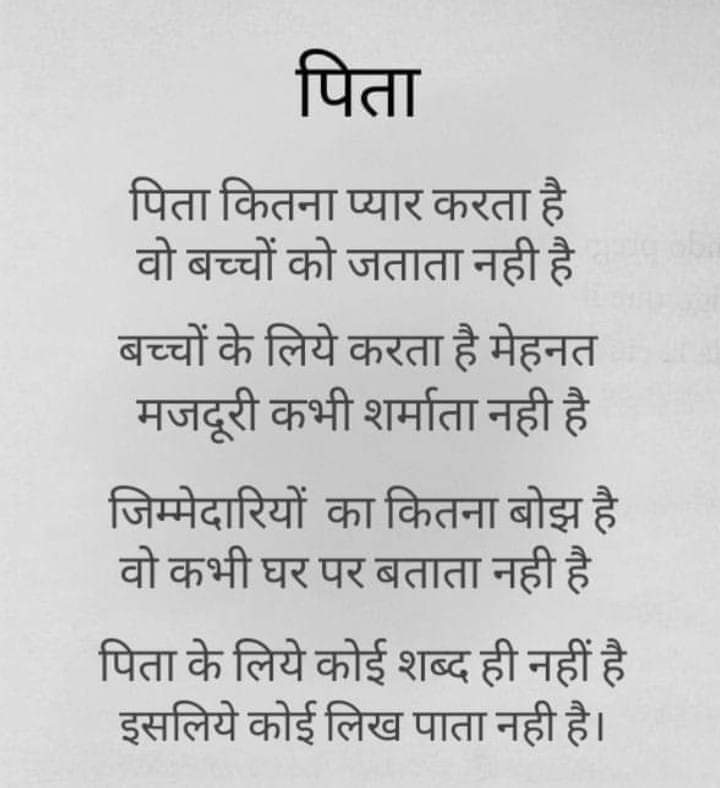 पिता
पिता कितना प्यार करता है
वो बच्चों को जताता नही है
बच्चों के लिये करता है मेहनत
मजदूरी कभी शर्माता नही है
जिम्मेदारियों का कितना बोझ है
वो कभी घर पर बताता नही है
पिता के लिये कोई शब्द ही नहीं है
इसलिये कोई लिख पाता नही है।